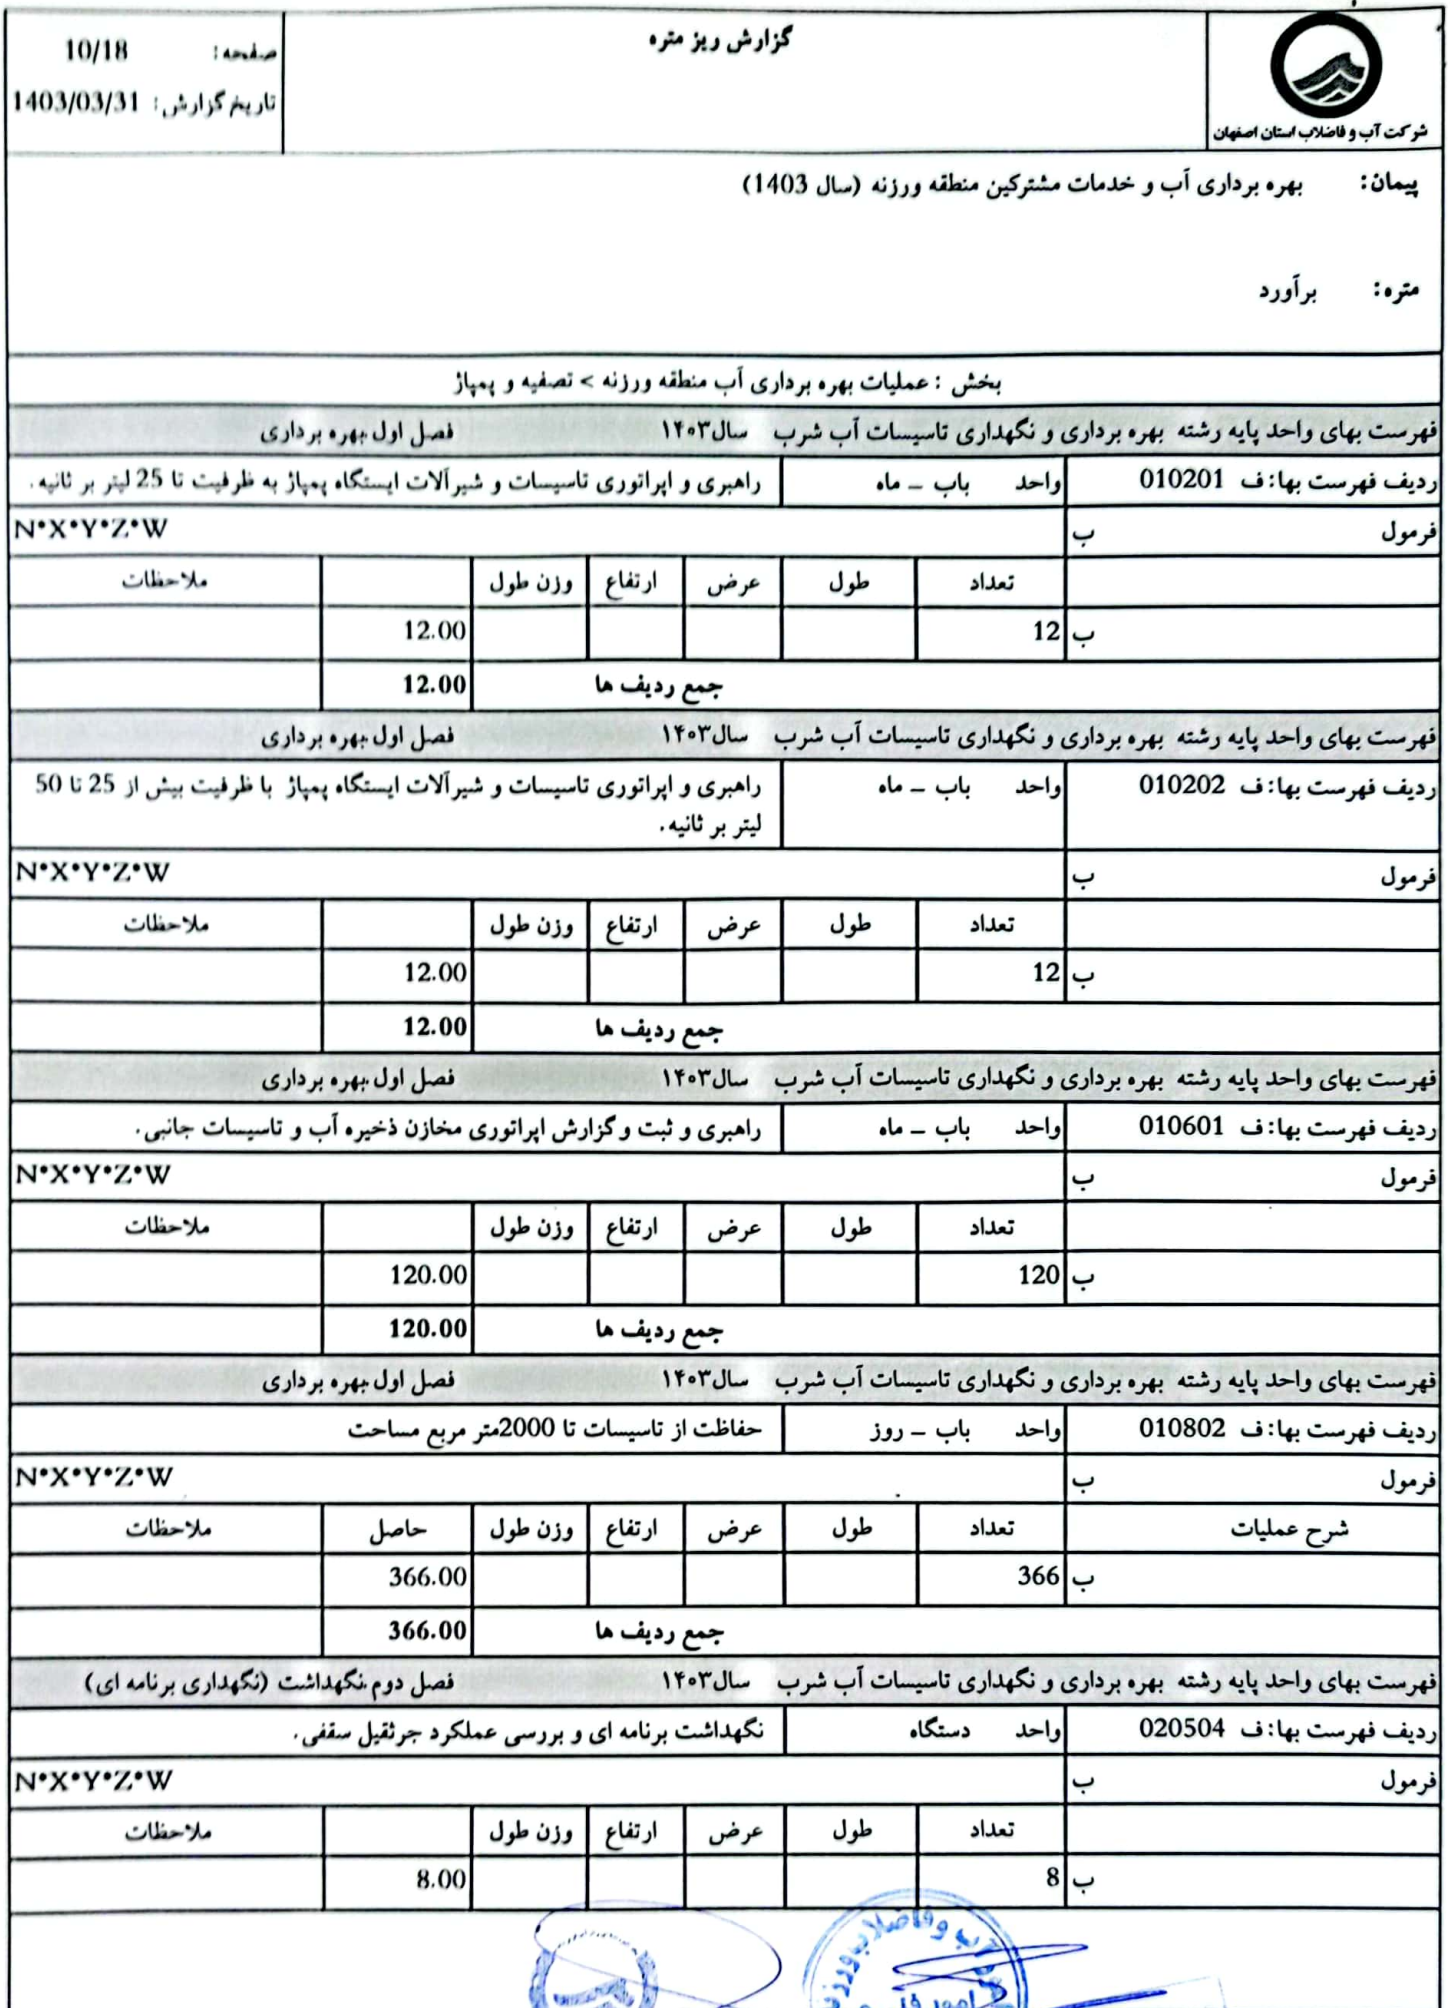 شرکت آب و فاضلاب استان اصفهان
گزارش ریز متره
صفحه: 10/18
تاریخ گزارش: 1403/03/31
پیمان: بهره برداری آب و خدمات مشترکین منطقه ورزنه (سال 1403)
متره: برآورد
بخش : عملیات بهره برداری آب منطقه ورزنه > تصفیه و پمپاژ
فهرست بهای واحد پایه رشته بهره برداری و نگهداری تاسیسات آب شرب سال۱۴۰۳ فصل اول بهره برداری
ردیف فهرست بها: ف 010201 واحد باب – ماه راهبری و اپراتوری تاسیسات و شیرآلات ایستگاه پمپاژ به ظرفیت تا 25 لیتر بر ثانیه.
فرمول ب N*X*Y*Z*W
تعداد طول عرض ارتفاع وزن طول ملاحظات
ب 12 12.00
جمع ردیف ها 12.00
فهرست بهای واحد پایه رشته بهره برداری و نگهداری تاسیسات آب شرب سال۱۴۰۳ فصل اول بهره برداری
ردیف فهرست بها: ف 010202 واحد باب – ماه راهبری و اپراتوری تاسیسات و شیرآلات ایستگاه پمپاژ با ظرفیت بیش از 25 تا 50
لیتر بر ثانیه.
فرمول ب N*X*Y*Z*W
تعداد طول عرض ارتفاع وزن طول ملاحظات
ب 12 12.00
جمع ردیف ها 12.00
فهرست بهای واحد پایه رشته بهره برداری و نگهداری تاسیسات آب شرب سال۱۴۰۳ فصل اول بهره برداری
ردیف فهرست بها: ف 010601 واحد باب – ماه راهبری و ثبت و گزارش اپراتوری مخازن ذخیره آب و تاسیسات جانبی.
فرمول ب N*X*Y*Z*W
تعداد طول عرض ارتفاع وزن طول ملاحظات
ب 120 120.00
جمع ردیف ها 120.00
فهرست بهای واحد پایه رشته بهره برداری و نگهداری تاسیسات آب شرب سال۱۴۰۳ فصل اول بهره برداری
ردیف فهرست بها: ف 010802 واحد باب – روز حفاظت از تاسیسات تا 2000متر مربع مساحت
فرمول ب N*X*Y*Z*W
شرح عملیات تعداد طول عرض ارتفاع وزن طول حاصل ملاحظات
ب 366 366.00
جمع ردیف ها 366.00
فهرست بهای واحد پایه رشته بهره برداری و نگهداری تاسیسات آب شرب سال۱۴۰۳ فصل دوم نگهداشت (نگهداری برنامه ای)
ردیف فهرست بها: ف 020504 واحد دستگاه نگهداشت برنامه ای و بررسی عملکرد جرثقیل سقفی.
فرمول ب N*X*Y*Z*W
تعداد طول عرض ارتفاع وزن طول ملاحظات
ب 8 8.00
آب و فاضلاب ورزنه
امور